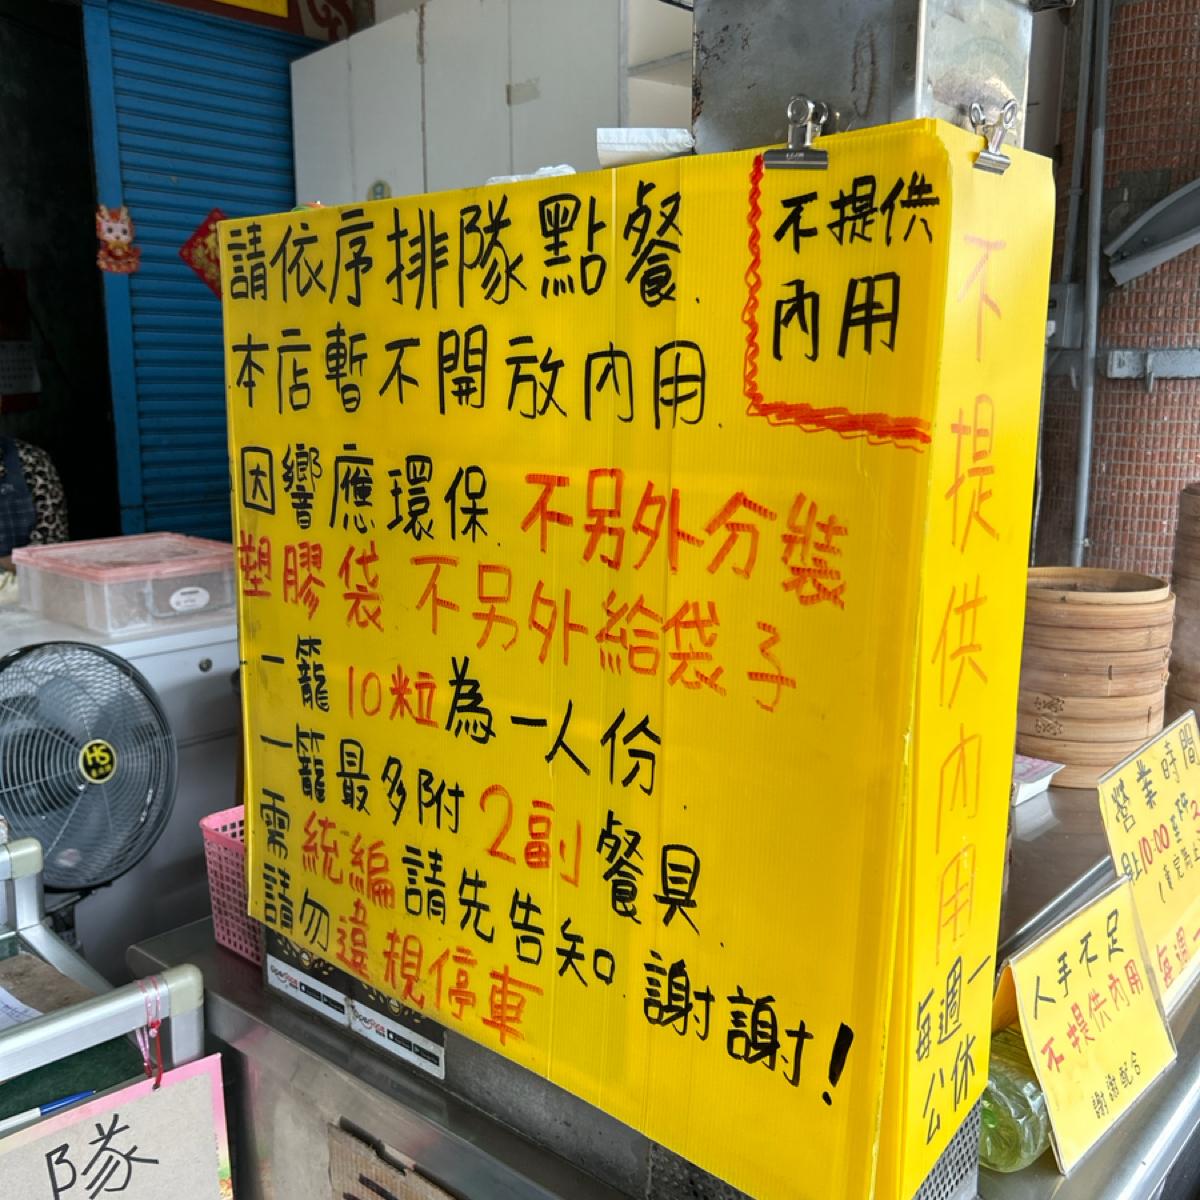 請依序排隊點餐.
本店暫不開放内用.
因響應環保.不另外分裝
塑膠袋 不另外給袋子
一籠10粒為一人份.
一籠最多附2副餐具.
需統編請先告知.謝謝!
請勿違規停車
不提供
內用
不提供內用
每週一
公休
HS
營業時間
早上10:00至
每週
人手不足
不提供內用
謝謝配合
隊